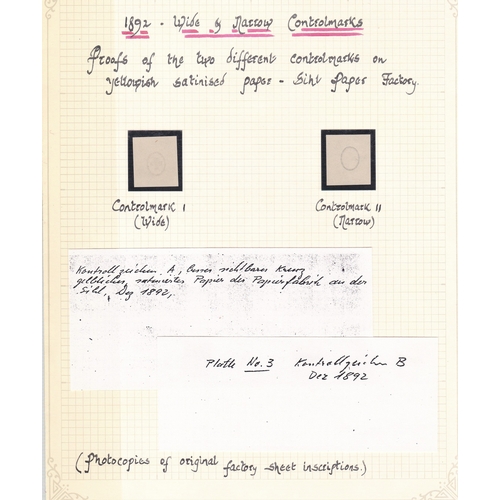 1892 - Wide & Narrow Controlmarks
Proofs of the two different controlmarks on
yellowish satinised paper - Sihl Paper Factory.
Controlmark I
(Wide)
Controlmark II
(Narrow)
Kontrollzeichen A, besser sichtbares Kreuz
gelbliches, satiniertes Papier der Papierfabrik an der
Sihl, Dez 1892,
Platte No. 3 Kontrollzeichen B
Dez 1892
(Photocopies of original factory sheet inscriptions.)